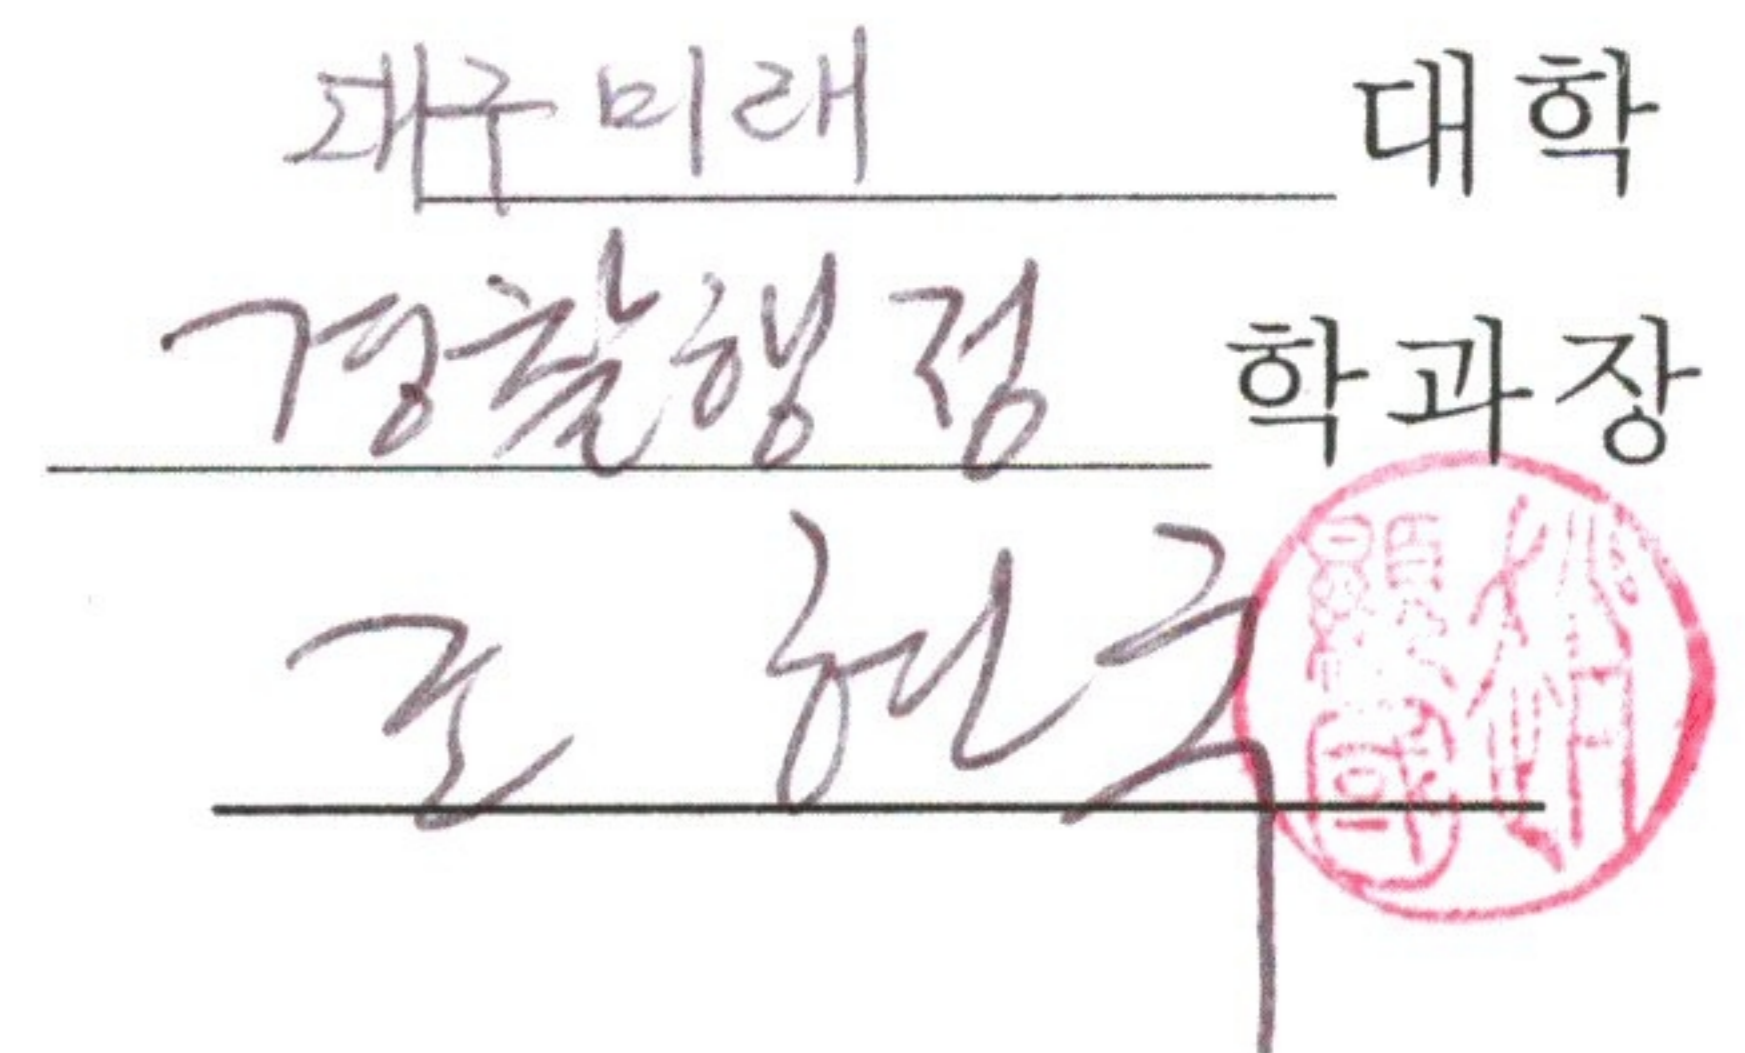 대구미래 대학
경찰행정 학과장
조 현국